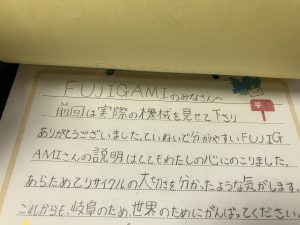 FUJIGAMIのみなさんへ
前回は実際の機械を見せて下さり
ありがとうございました。ていねいで分かやすいFUJIG
AMIさんの説明はとてもわたしの心にのこりました。
あらためてリサイクルの大切さを分かったような気がします。
これからも、岐阜のため、世界のためにがんばってください。